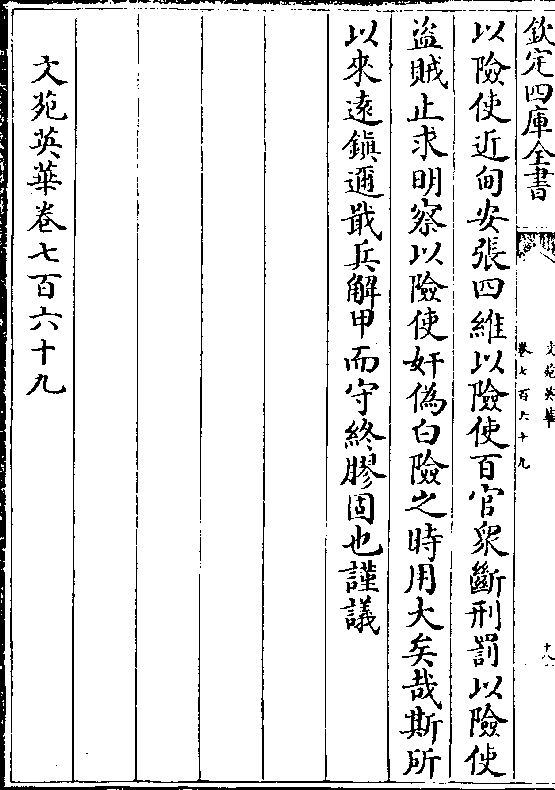 欽定四庫全書
文苑英華
卷七百六十九
十八
以險使近甸安張四維以險使百官衆斷刑罰以險使
盗賊止求明察以險使奸偽白險之時用大矣哉斯所
以來遠鎭邇戢兵解甲而守終膠固也謹議
文苑英華卷七百六十九